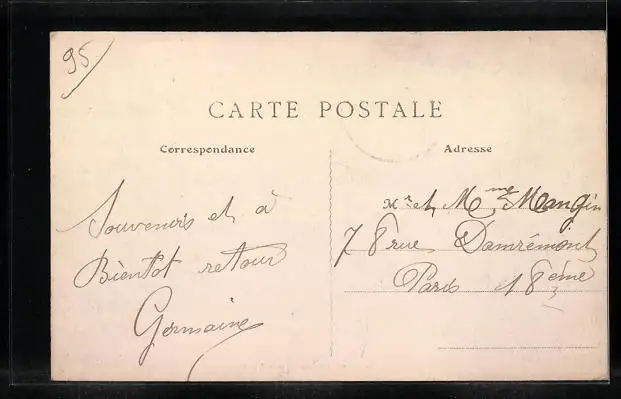 95
CARTE POSTALE
Correspondance
Adresse
Souvenirs et à
Bientot retour
Germaine
Mr et Mme Mangin
78 rue Damrémont
Paris 18ème